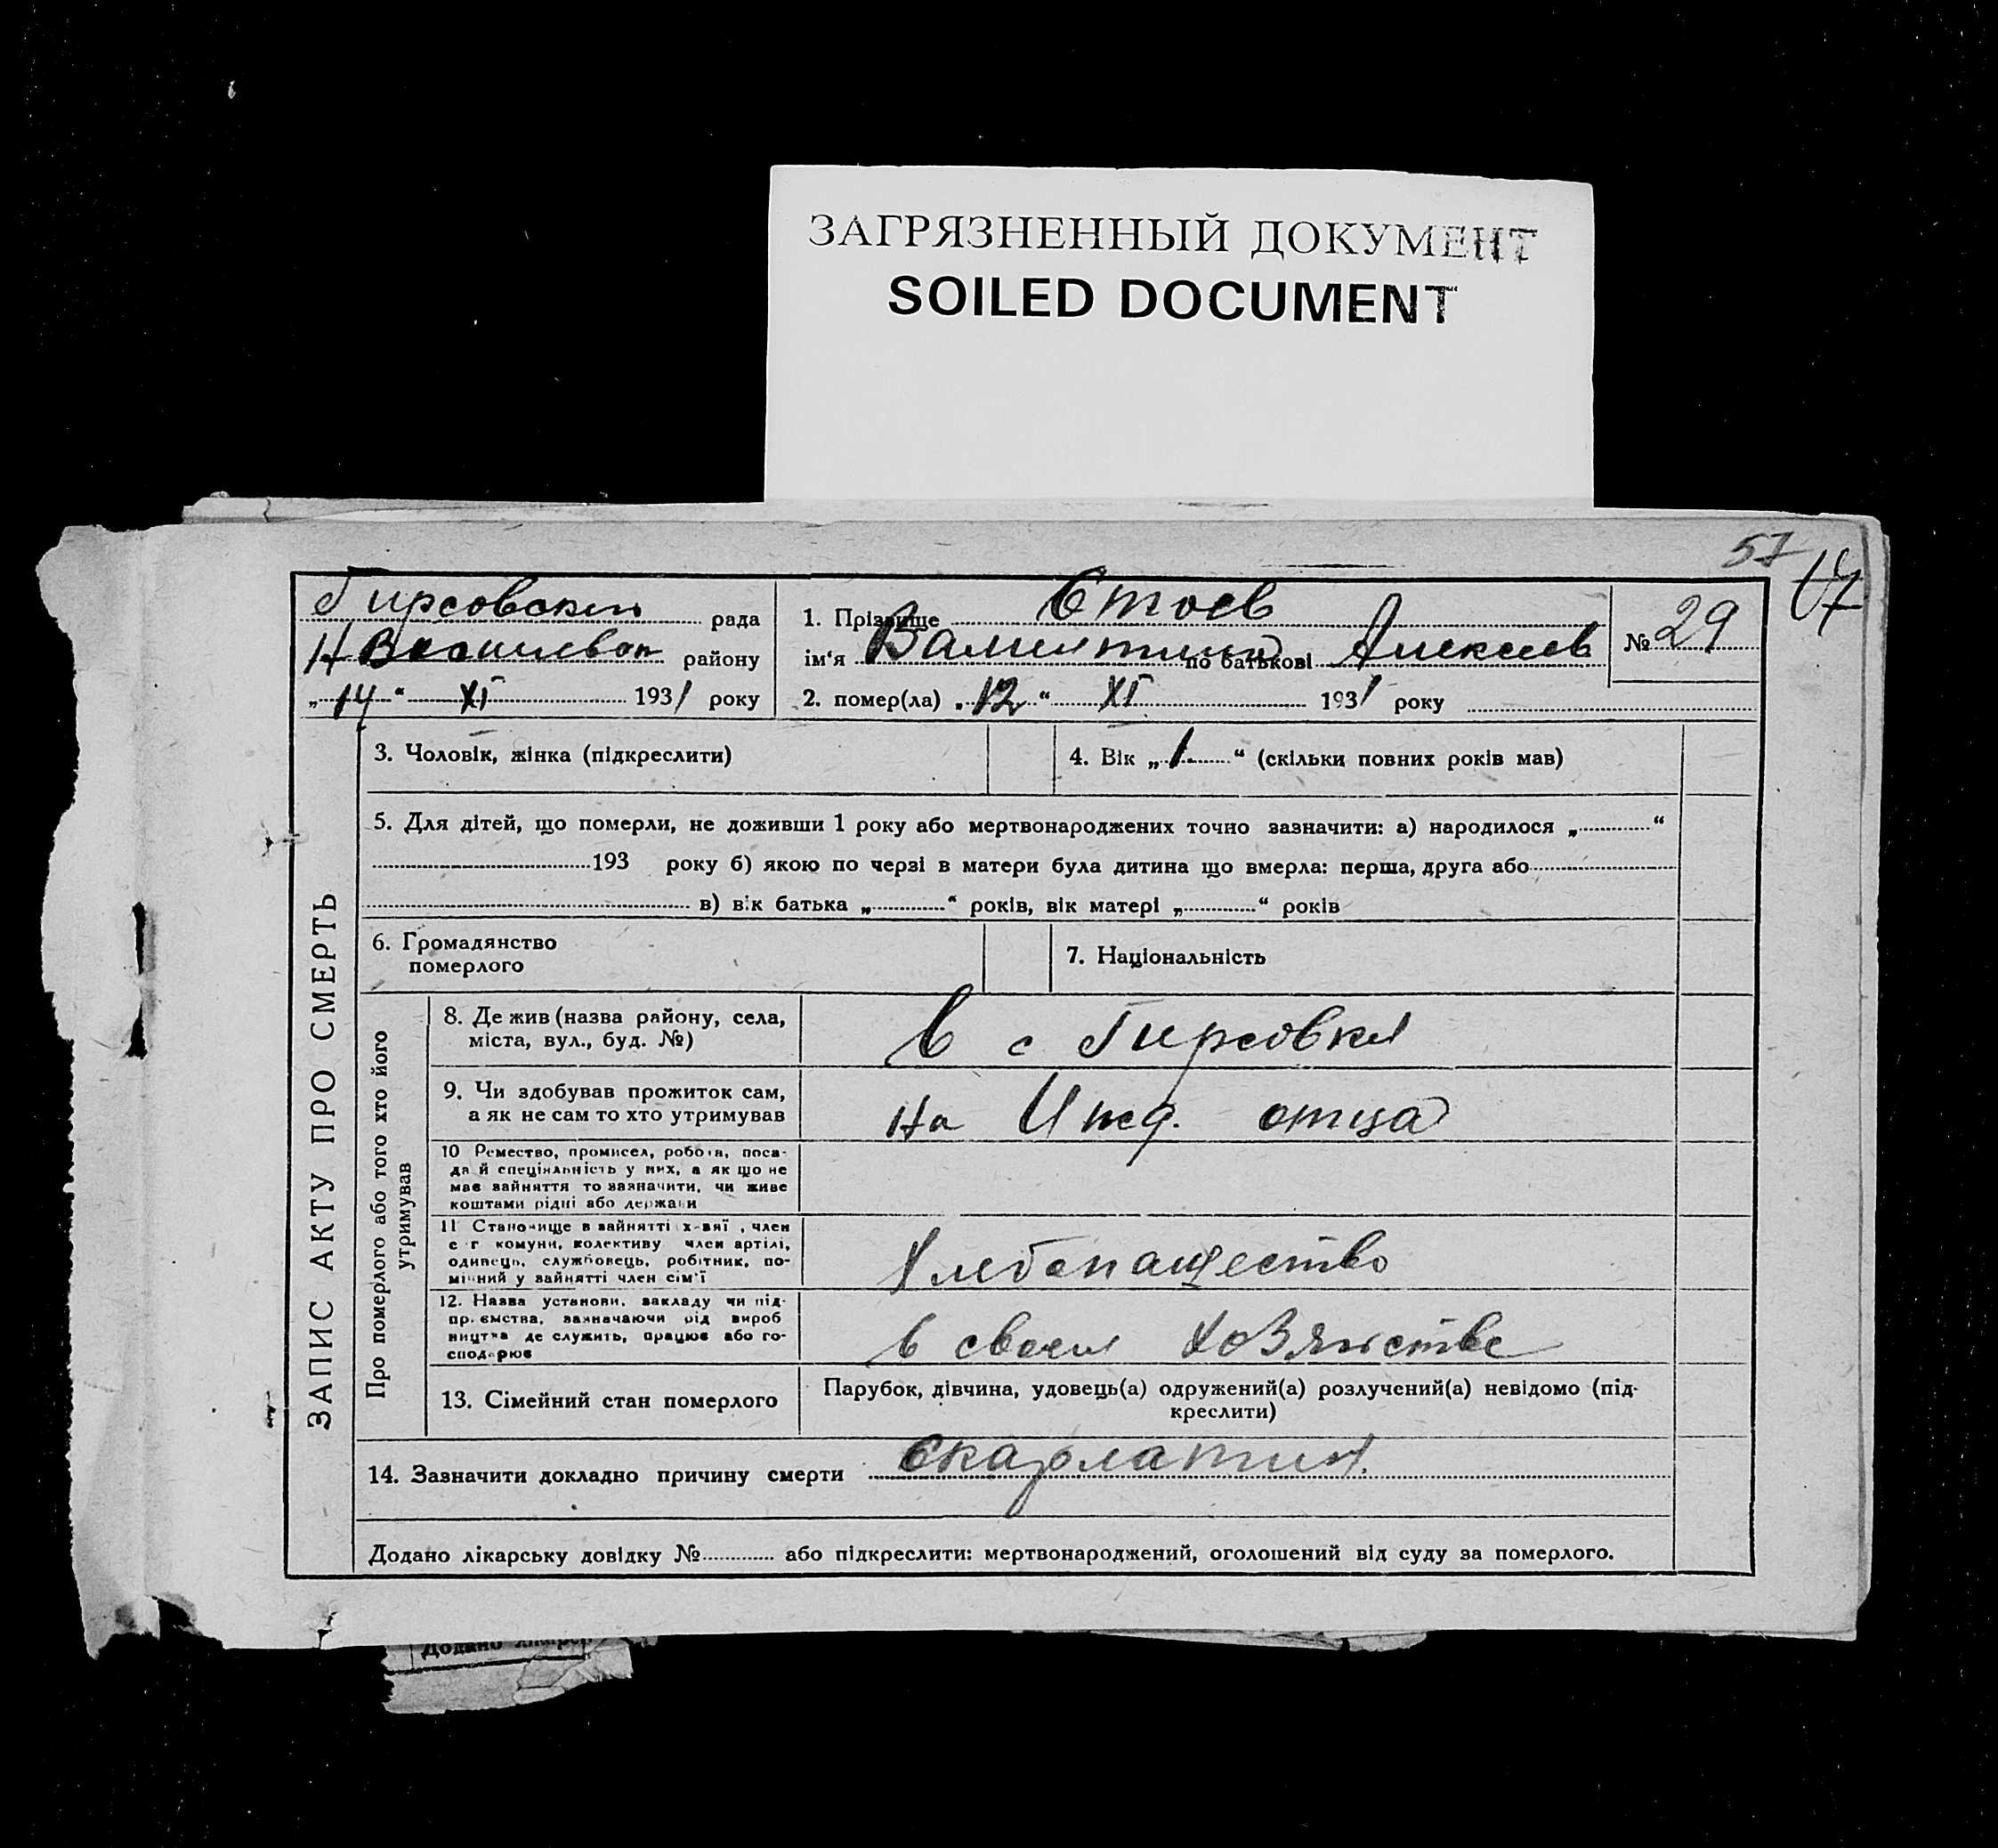 ЗАГРЯЗНЕННЫЙ ДОКУМЕНТ
SOILED DOCUMENT
57
17
Гирсовский рада
Н Василевск району
„14“ XI 1931 року
1. Прізвище Стоев
ім‘я Валентина по батькові Алексеев
№ 29
2. помер(ла) „12“ XI 1931 року
ЗАПИС АКТУ ПРО СМЕРТЬ
3. Чоловік, жінка (підкреслити)
4. Вік „1“ (скільки повних років мав)
5. Для дітей, що померли, не доживши 1 року або мертвонароджених точно зазначити: а) народилося „ “
193 року б) якою по черзі в матери була дитина що вмерла: перша, друга або
в) вік батька „ “ років, вік матері „ “ років
6. Громадянство
померлого
7. Національність
Про померлого або того хто його
утримував
8. Де жив (назва району, села,
міста, вул., буд. №)
в с Гирсовки
9. Чи здобував прожиток сам,
а як не сам то хто утримував
На Ижд. отца
10 Ремество, промисел, робота, поса-
да й спеціяльність у них, а як що не
має зайняття то зазначити, чи живе
коштами рідні або держави
11 Становище в зайнятті х-вяї , член
с г комуни, колективу член артілі,
одинець, службовець, робітник, по-
мічний у зайнятті член сім'ї
Хлебопащество
12. Назва установи, закладу чи під-
приємства, зазначаючи рід вироб
ництва де служить, працює або го-
сподарює
в своем хозяистве
13. Сімейний стан померлого
Парубок, дівчина, удовець(а) одружений(а) розлучений(а) невідомо (під-
креслити)
14. Зазначити докладно причину смерти скарлатин.
Додано лікарську довідку № або підкреслити: мертвонароджений, оголошений від суду за померлого.
Додано лікарсь